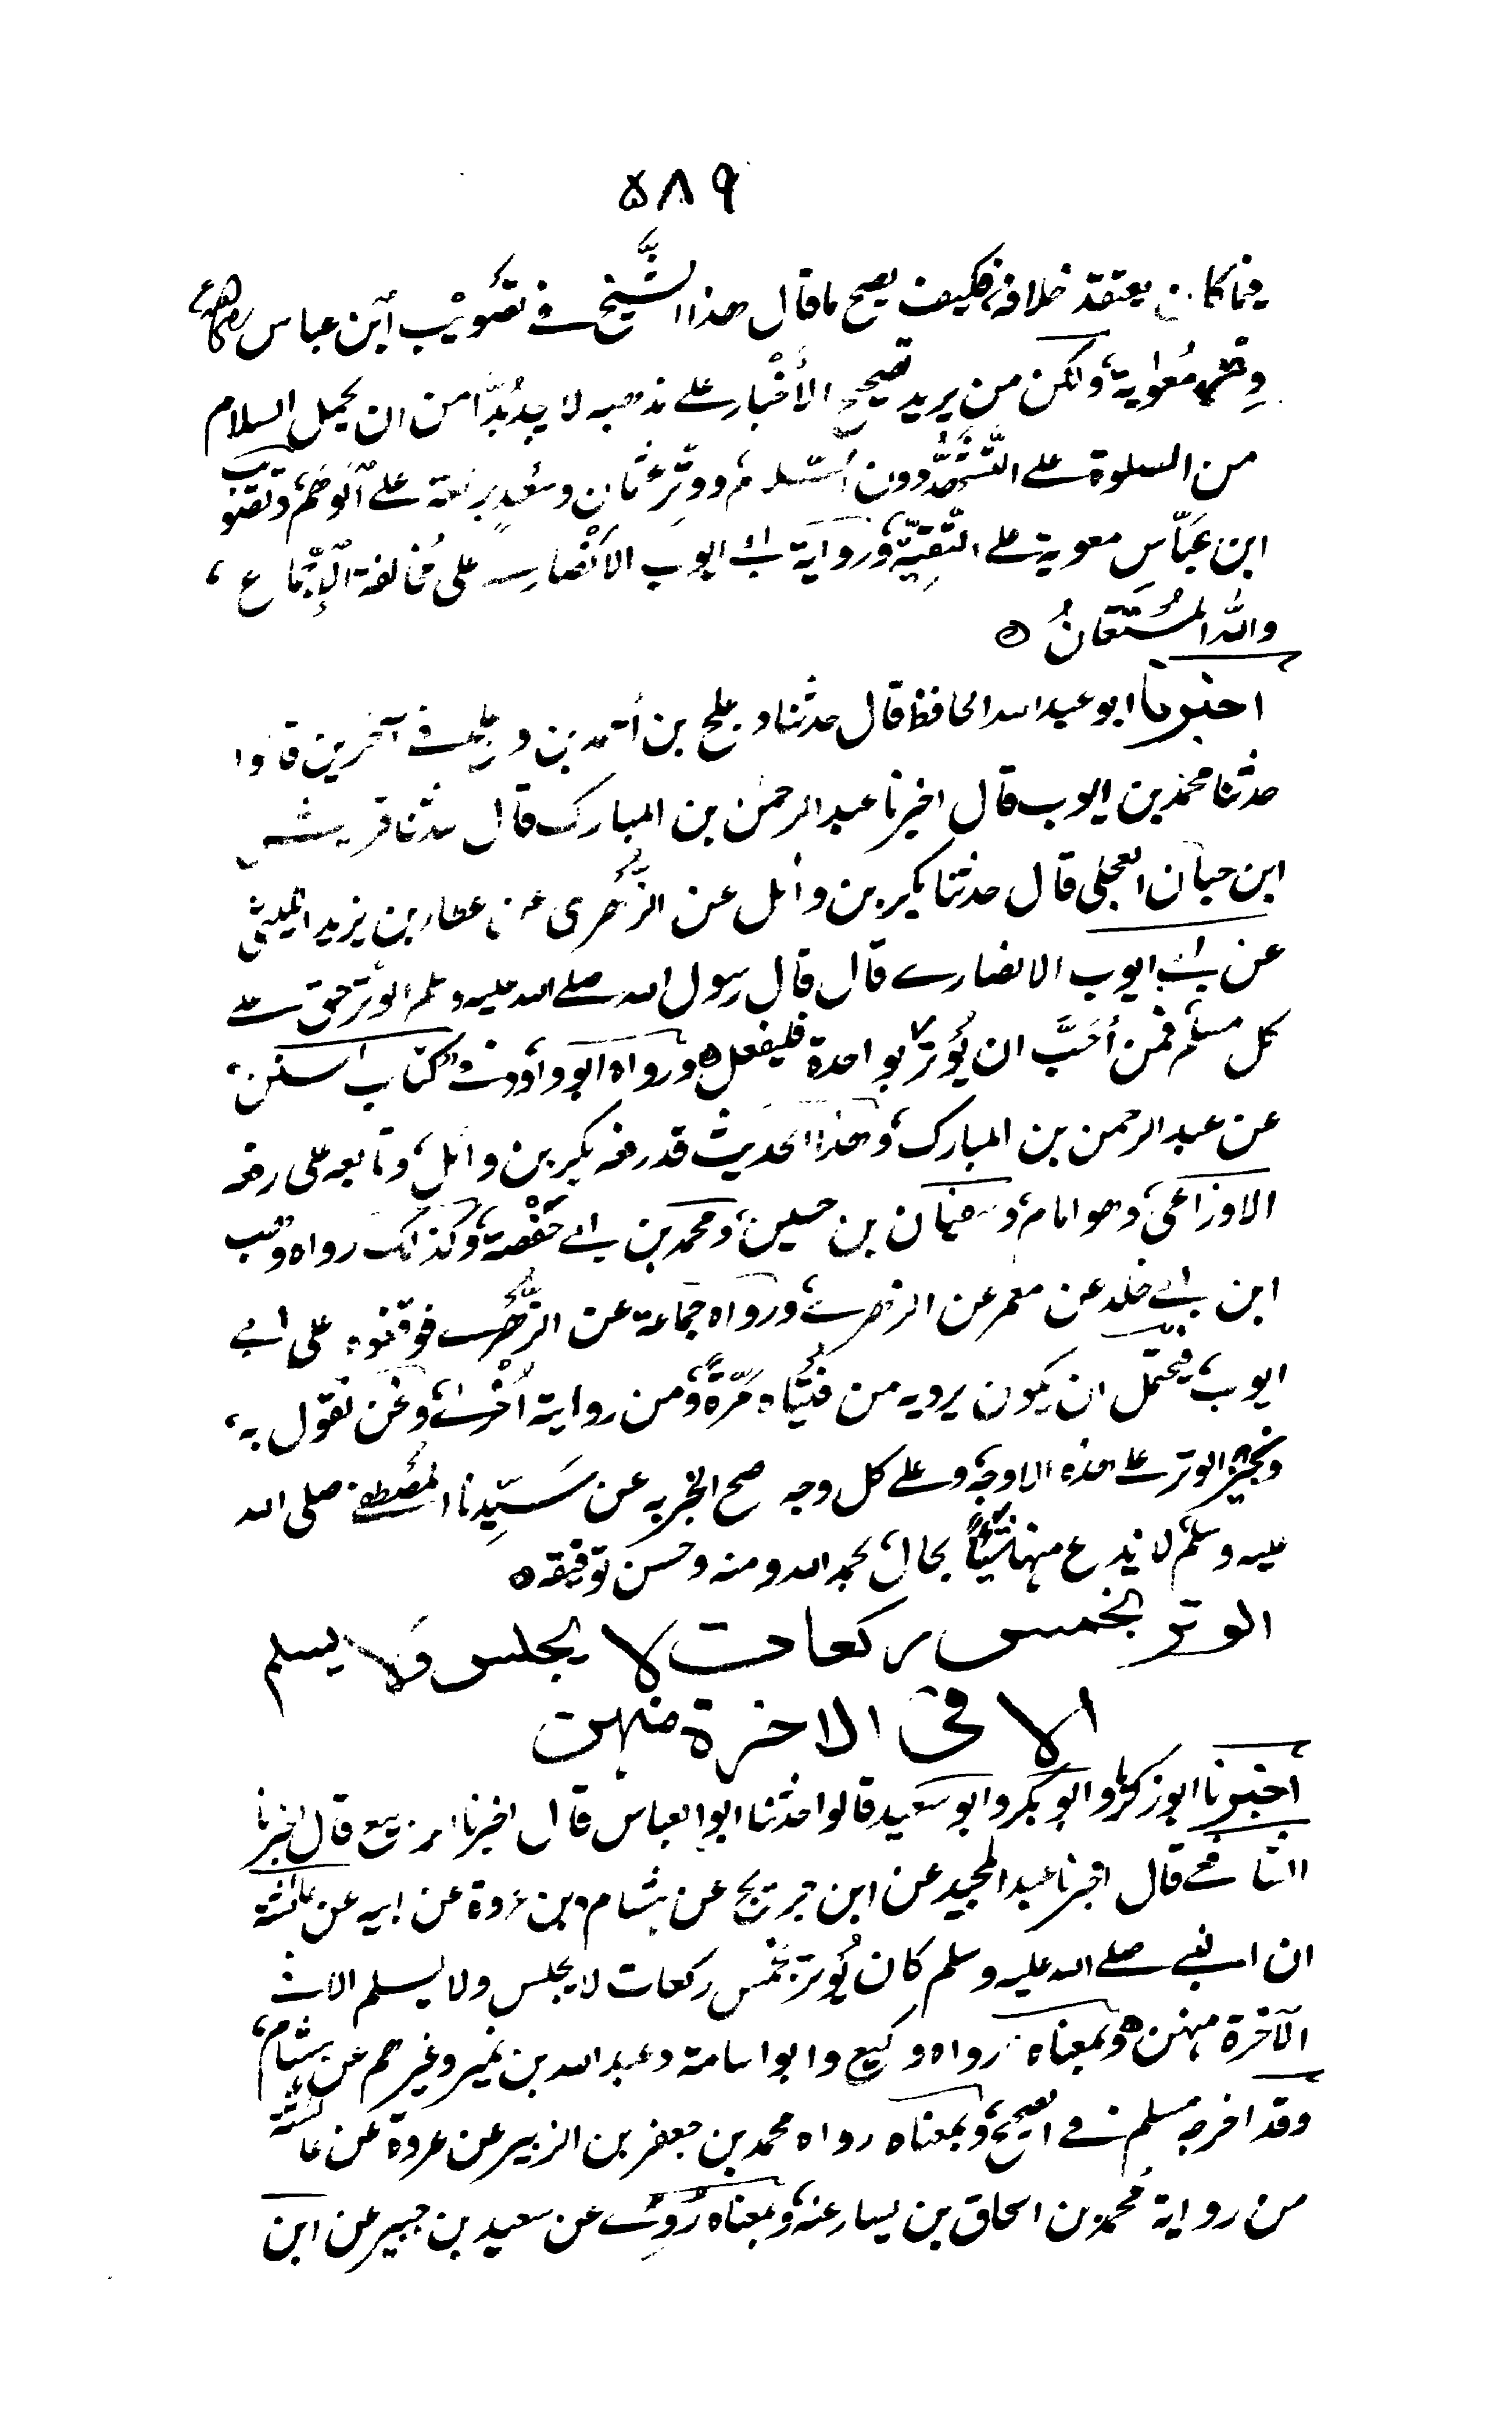 ۵۸۹
فيما كان يعتقد خلافه، فكيف يصح ما قال هذا الشيخ في تصويب ابن عباس
معوية، ولكن من يريد تصحيح الأخبار على مذهبه لا يجد بُدًّا من ان يحمل السلام
من الصلوة على التشهد دون التسليم، ووتر عثمان وسعد بركعة على الوهم، وتصويب
ابن عبّاس معوية على التقيّة، ورواية ابى ايوب الانصارى على مخالفة الإجماع،
والله المستعانُ ٥
اخبرنا ابو عبد الله الحافظ قال حدثنا دعلج بن أحمد بن دعلج في آخرين قالوا
حدثنا محمد بن ايوب قال اخبرنا عبد الرحمن بن المبارك قال حدثنا قريش
ابن حيان العجلى قال حدثنا بكير بن وائل عن الزُّهرى عن عطاء بن يزيد الليثى
عن ابى ايوب الانصارى قال قال رسول الله صلى الله عليه وسلم الوتر حق على
كل مسلم، فمن أحَبَّ ان يُوتر بواحدة فليفعل ٥ ورواه ابو داؤد في كتاب السنن،
عن عبد الرحمن بن المبارك، وهذا الحديث قد رفعه بكير بن وائل، وتابعه على رفعه
الاوزاعى، وهو امام، وسفيان بن حسين، ومحمد بن ابى حَفْصة، وكذلك رواه وهب
ابن ابى خلد عن معمر عن الزهرى، ورواه جماعة عن الزُّهرى فوقفوه على ابى
ايوب، فيحتمل ان يكون يرويه من فتياه مَرّةً، ومن رواية اُخرى، ونحن نقول به،
ونجيز الوتر على هذه الاوجه، وعلى كل وجه صح الخبر به عن سَيّدِنا المصطفى صلى الله
عليه وسلم، لا ندع منها شيئًا بحال، بحمد الله ومنه وحسن توفيقه ٥
الوتر بخمس ركعات لا يجلس ولا يسلم
الا فى الاخرة منهن
اخبرنا ابو زكريا وابو بكر وابو سعيد قالوا حدثنا ابو العباس قال اخبرنا الربيع قال اخبرنا
الشافعى قال اخبرنا عبد المجيد عن ابن جريج عن هشام بن عروة عن ابيه عن عائشة
ان النبى صلى الله عليه وسلم كان يُوتر بخمس ركعات لا يجلس ولا يسلم الا فى
الآخرة منهن ٥ وبمعناه رواه وكيع وابو اسامة وعبد الله بن نمير وغيرهم عن هشام،
وقد اخرجه مسلم في الصحيح، وبمعناه رواه محمد بن جعفر بن الزبير عن عروة عن عائشة
من رواية محمد بن اسحاق بن يسار عنه، وبمعناه رُوِىَ عن سعيد بن جبير عن ابن